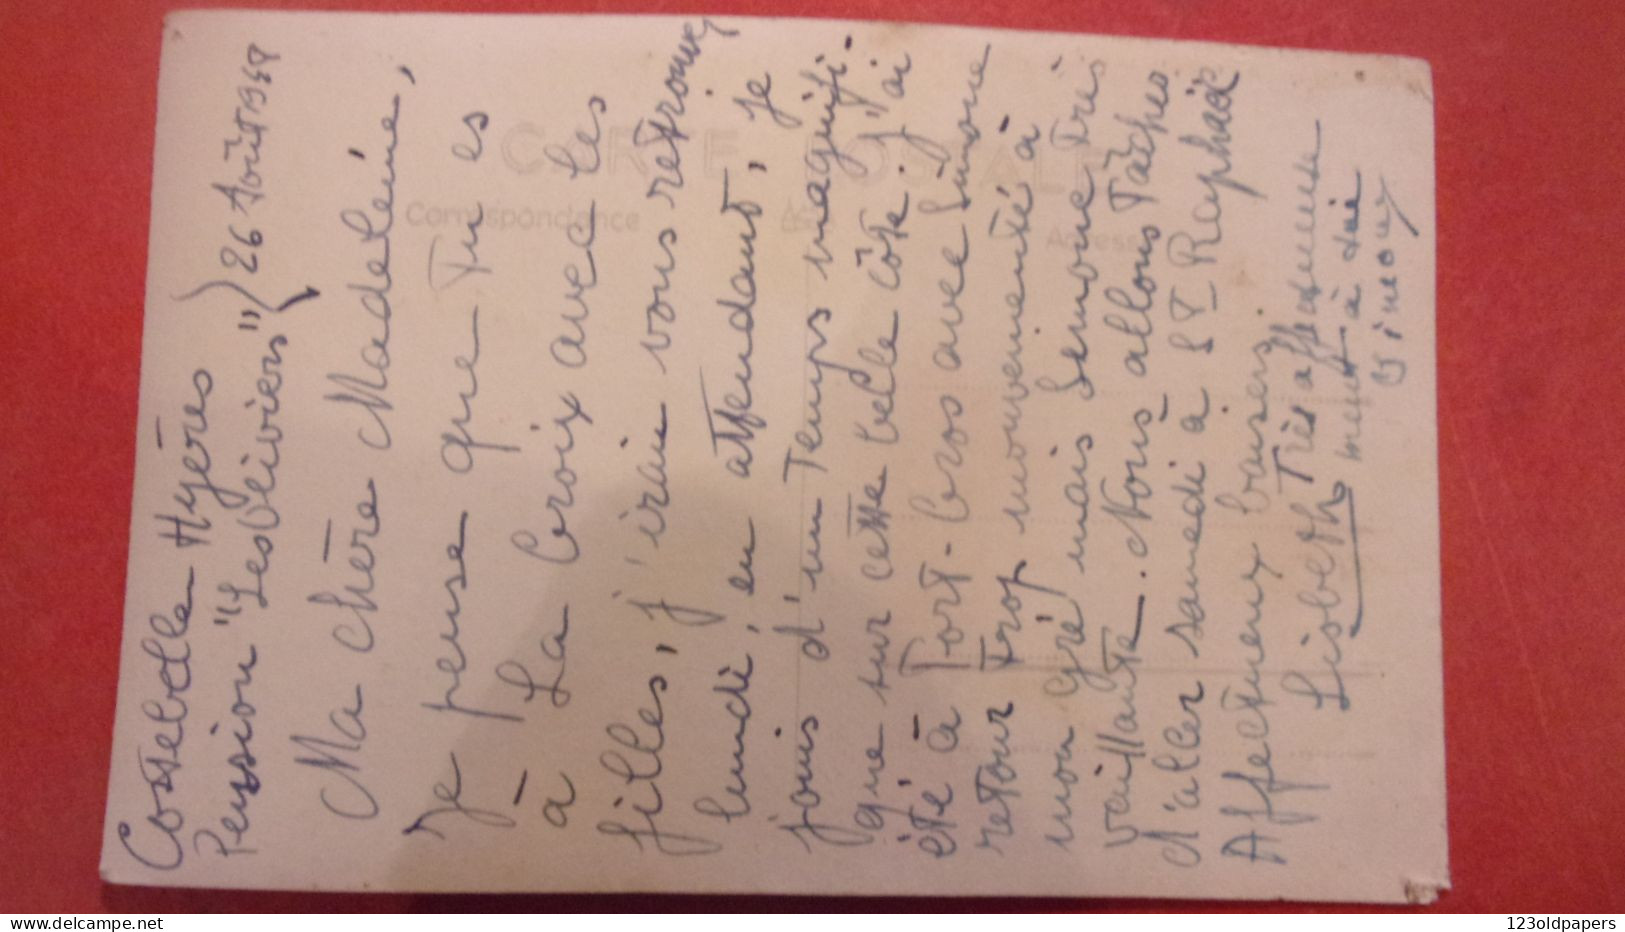 Costebelle Hyères
Pension "Les Oliviers" } 26 Août 1948
Ma chère Madeleine,
Je pense que tu es
à La Croix avec les
filles, j'irai vous retrouver
lundi, en attendant, je
jouis d'un temps magnifi-
que sur cette belle côte. J'ai
été à Port-Cros avec Simone
retour trop mouvementé à
mon gré mais Simone très
vaillante. Nous allons tâcher
d'aller samedi à St Raphaël
Affectueux baisers.
Lisbeth
Très affectueuse
ment à toi
Simone
CARTE POSTALE
Correspondance
Adresse
123oldpapers